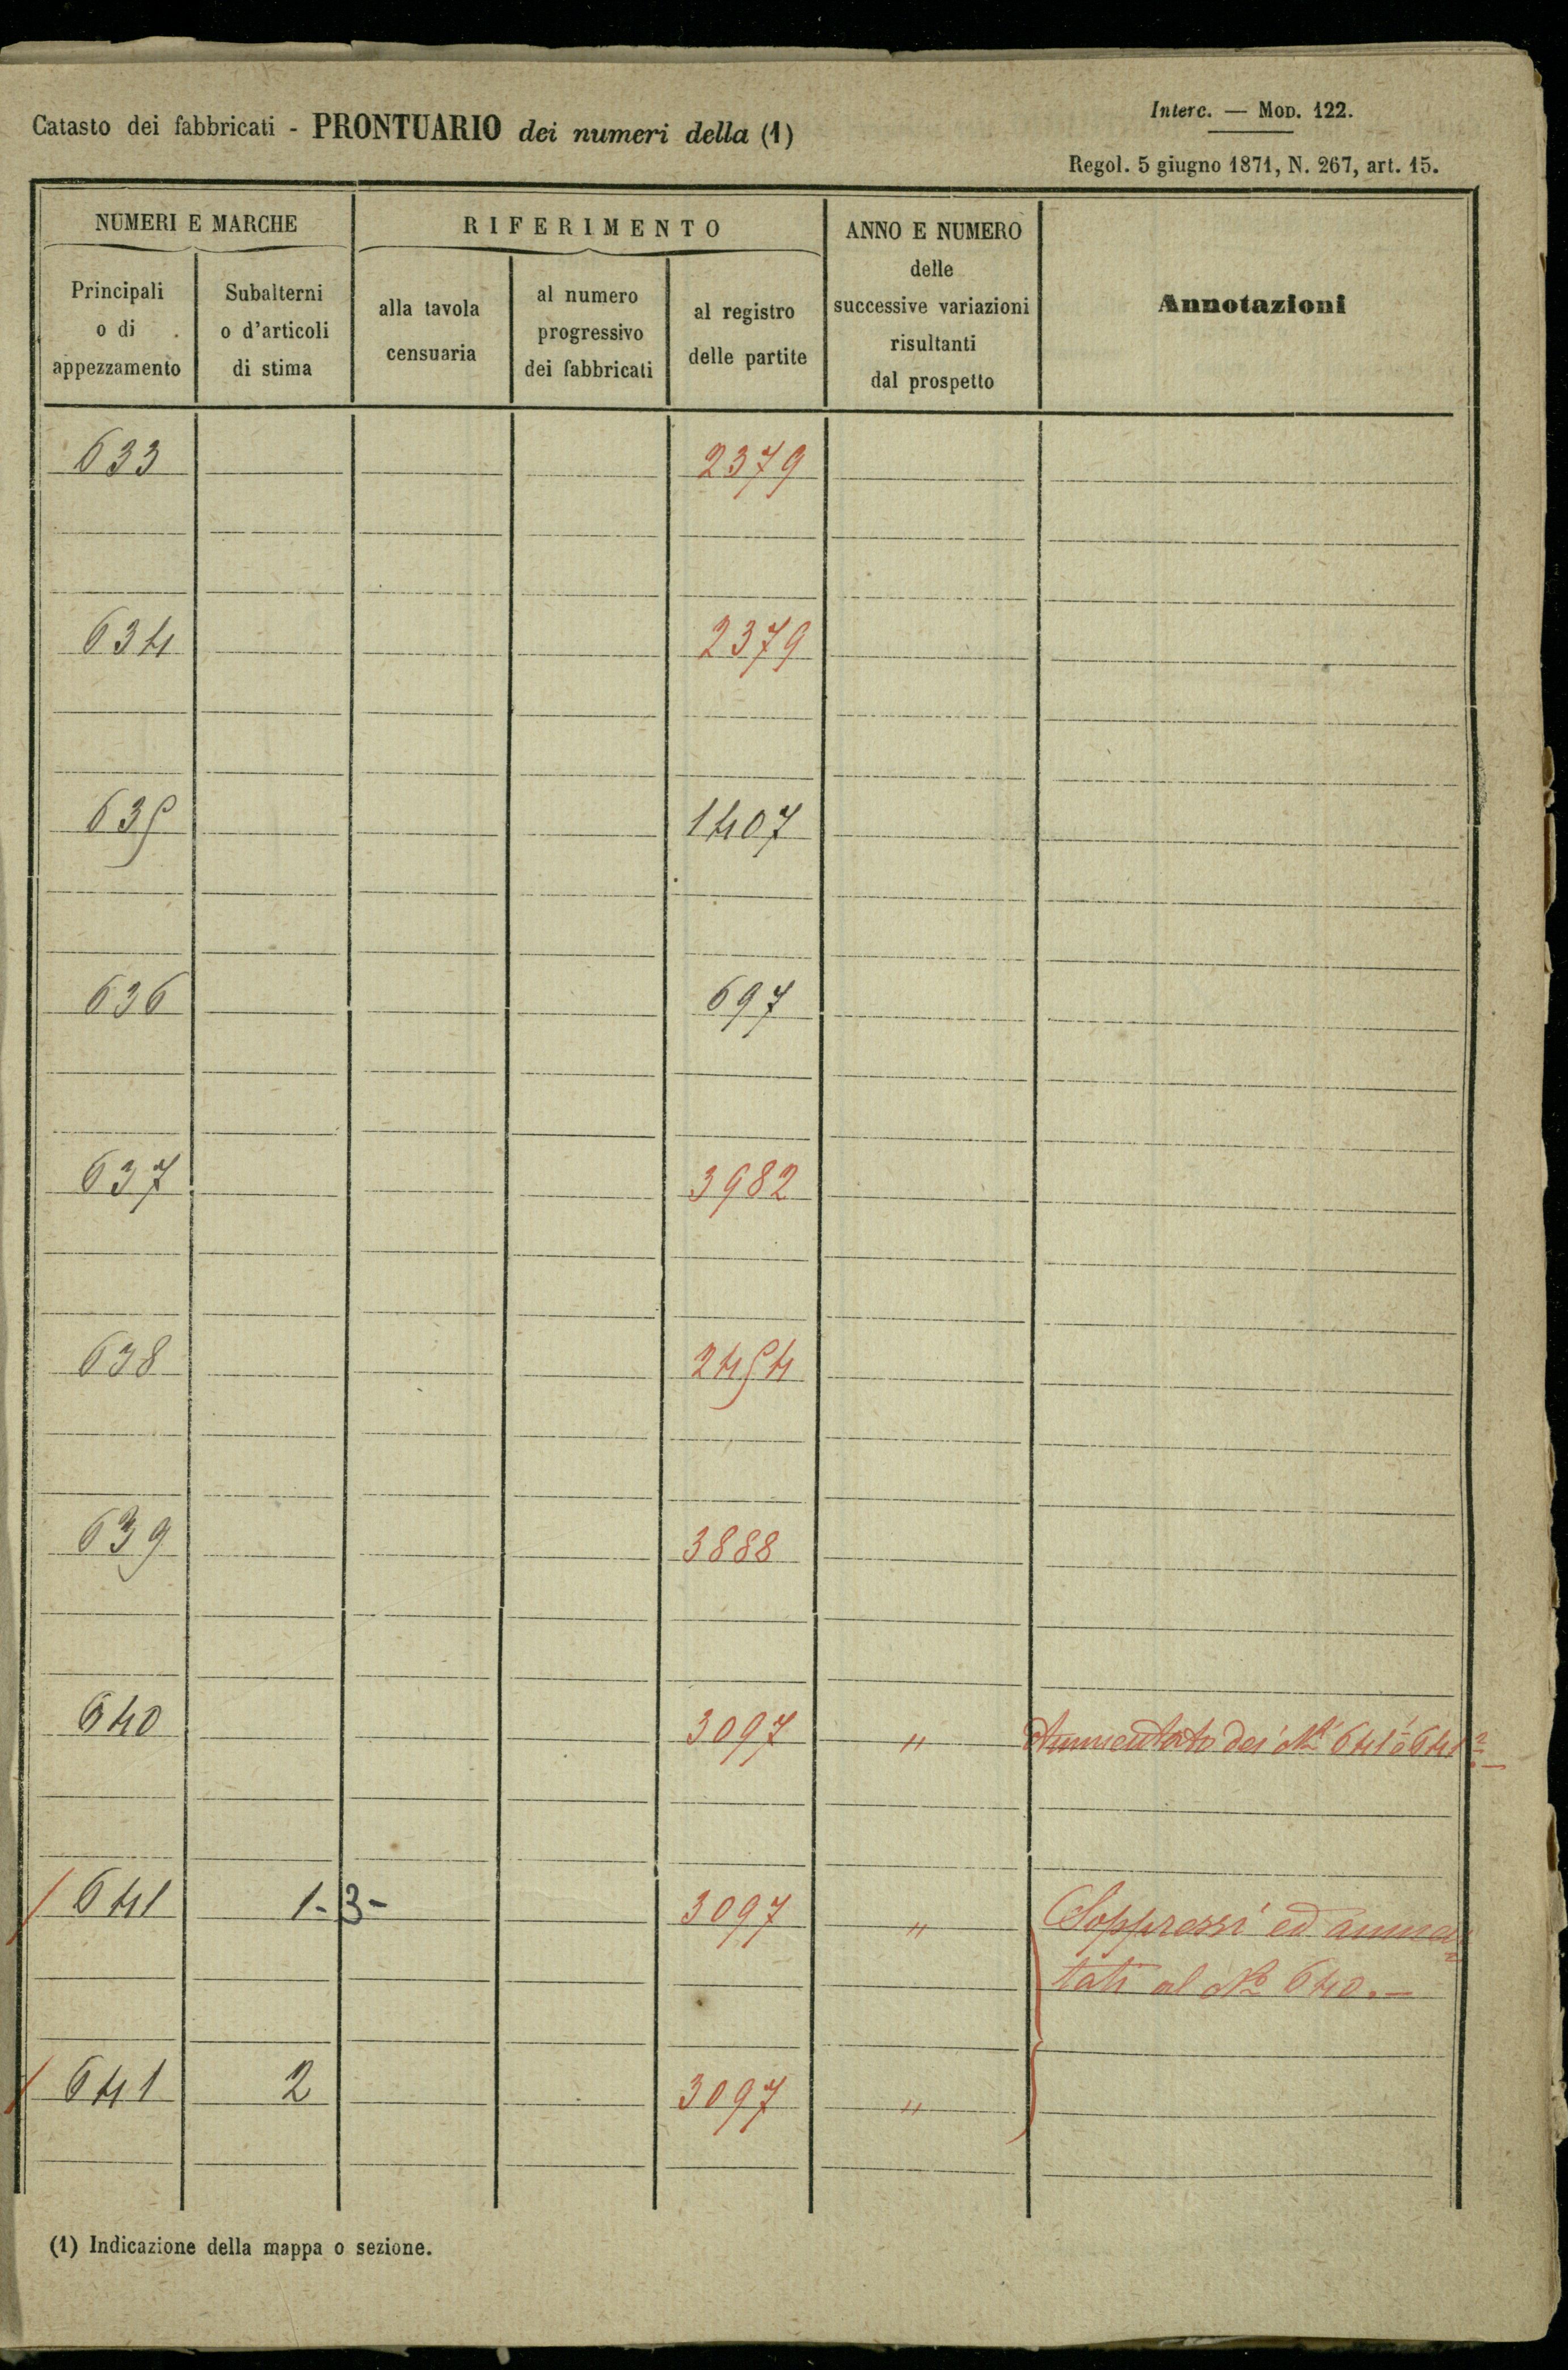 Catasto dei fabbricati - PRONTUARIO dei numeri della (1)
Interc. — MOD. 122.
Regol. 5 giugno 1871, N. 267, art. 15.
NUMERI E MARCHE
RIFERIMENTO
ANNO E NUMERO
delle
successive variazioni
risultanti
dal prospetto
Annotazioni
Principali
o di
appezzamento
Subalterni
o d'articoli
di stima
alla tavola
censuaria
al numero
progressivo
dei fabbricati
al registro
delle partite
633 2379
634 2379
635 1407
636 697
637 3982
638 2454
639 3888
640 3097 " Aumentato dei Ni 641¹ e 641²
641 1-3- 3097 " Soppressi ed aumen=
tati al No 640.—
641 2 3097 "
(1) Indicazione della mappa o sezione.